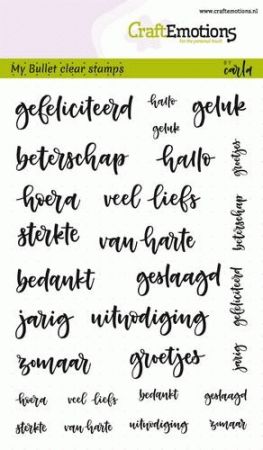 www.craftemotions.nl
CraftEmotions
for the personal touch!
My Bullet clear stamps
BY carla
gefeliciteerd hallo geluk
geluk
beterschap hallo groetjes
hoera veel liefs
sterkte van harte beterschap
bedankt geslaagd gefeliciteerd
jarig uitnodiging
zomaar groetjes jarig
hoera veel liefs bedankt geslaagd
sterkte van harte uitnodiging zomaar